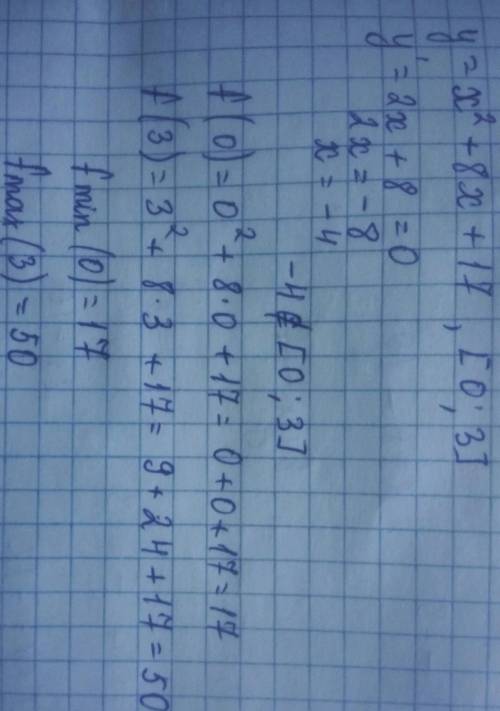 y = x² + 8x + 17, [0; 3]
y' = 2x + 8 = 0
2x = -8
x = -4
-4 ∉ [0; 3]
f(0) = 0² + 8·0 + 17 = 0 + 0 + 17 = 17
f(3) = 3² + 8·3 + 17 = 9 + 24 + 17 = 50
fmin (0) = 17
fmax (3) = 50